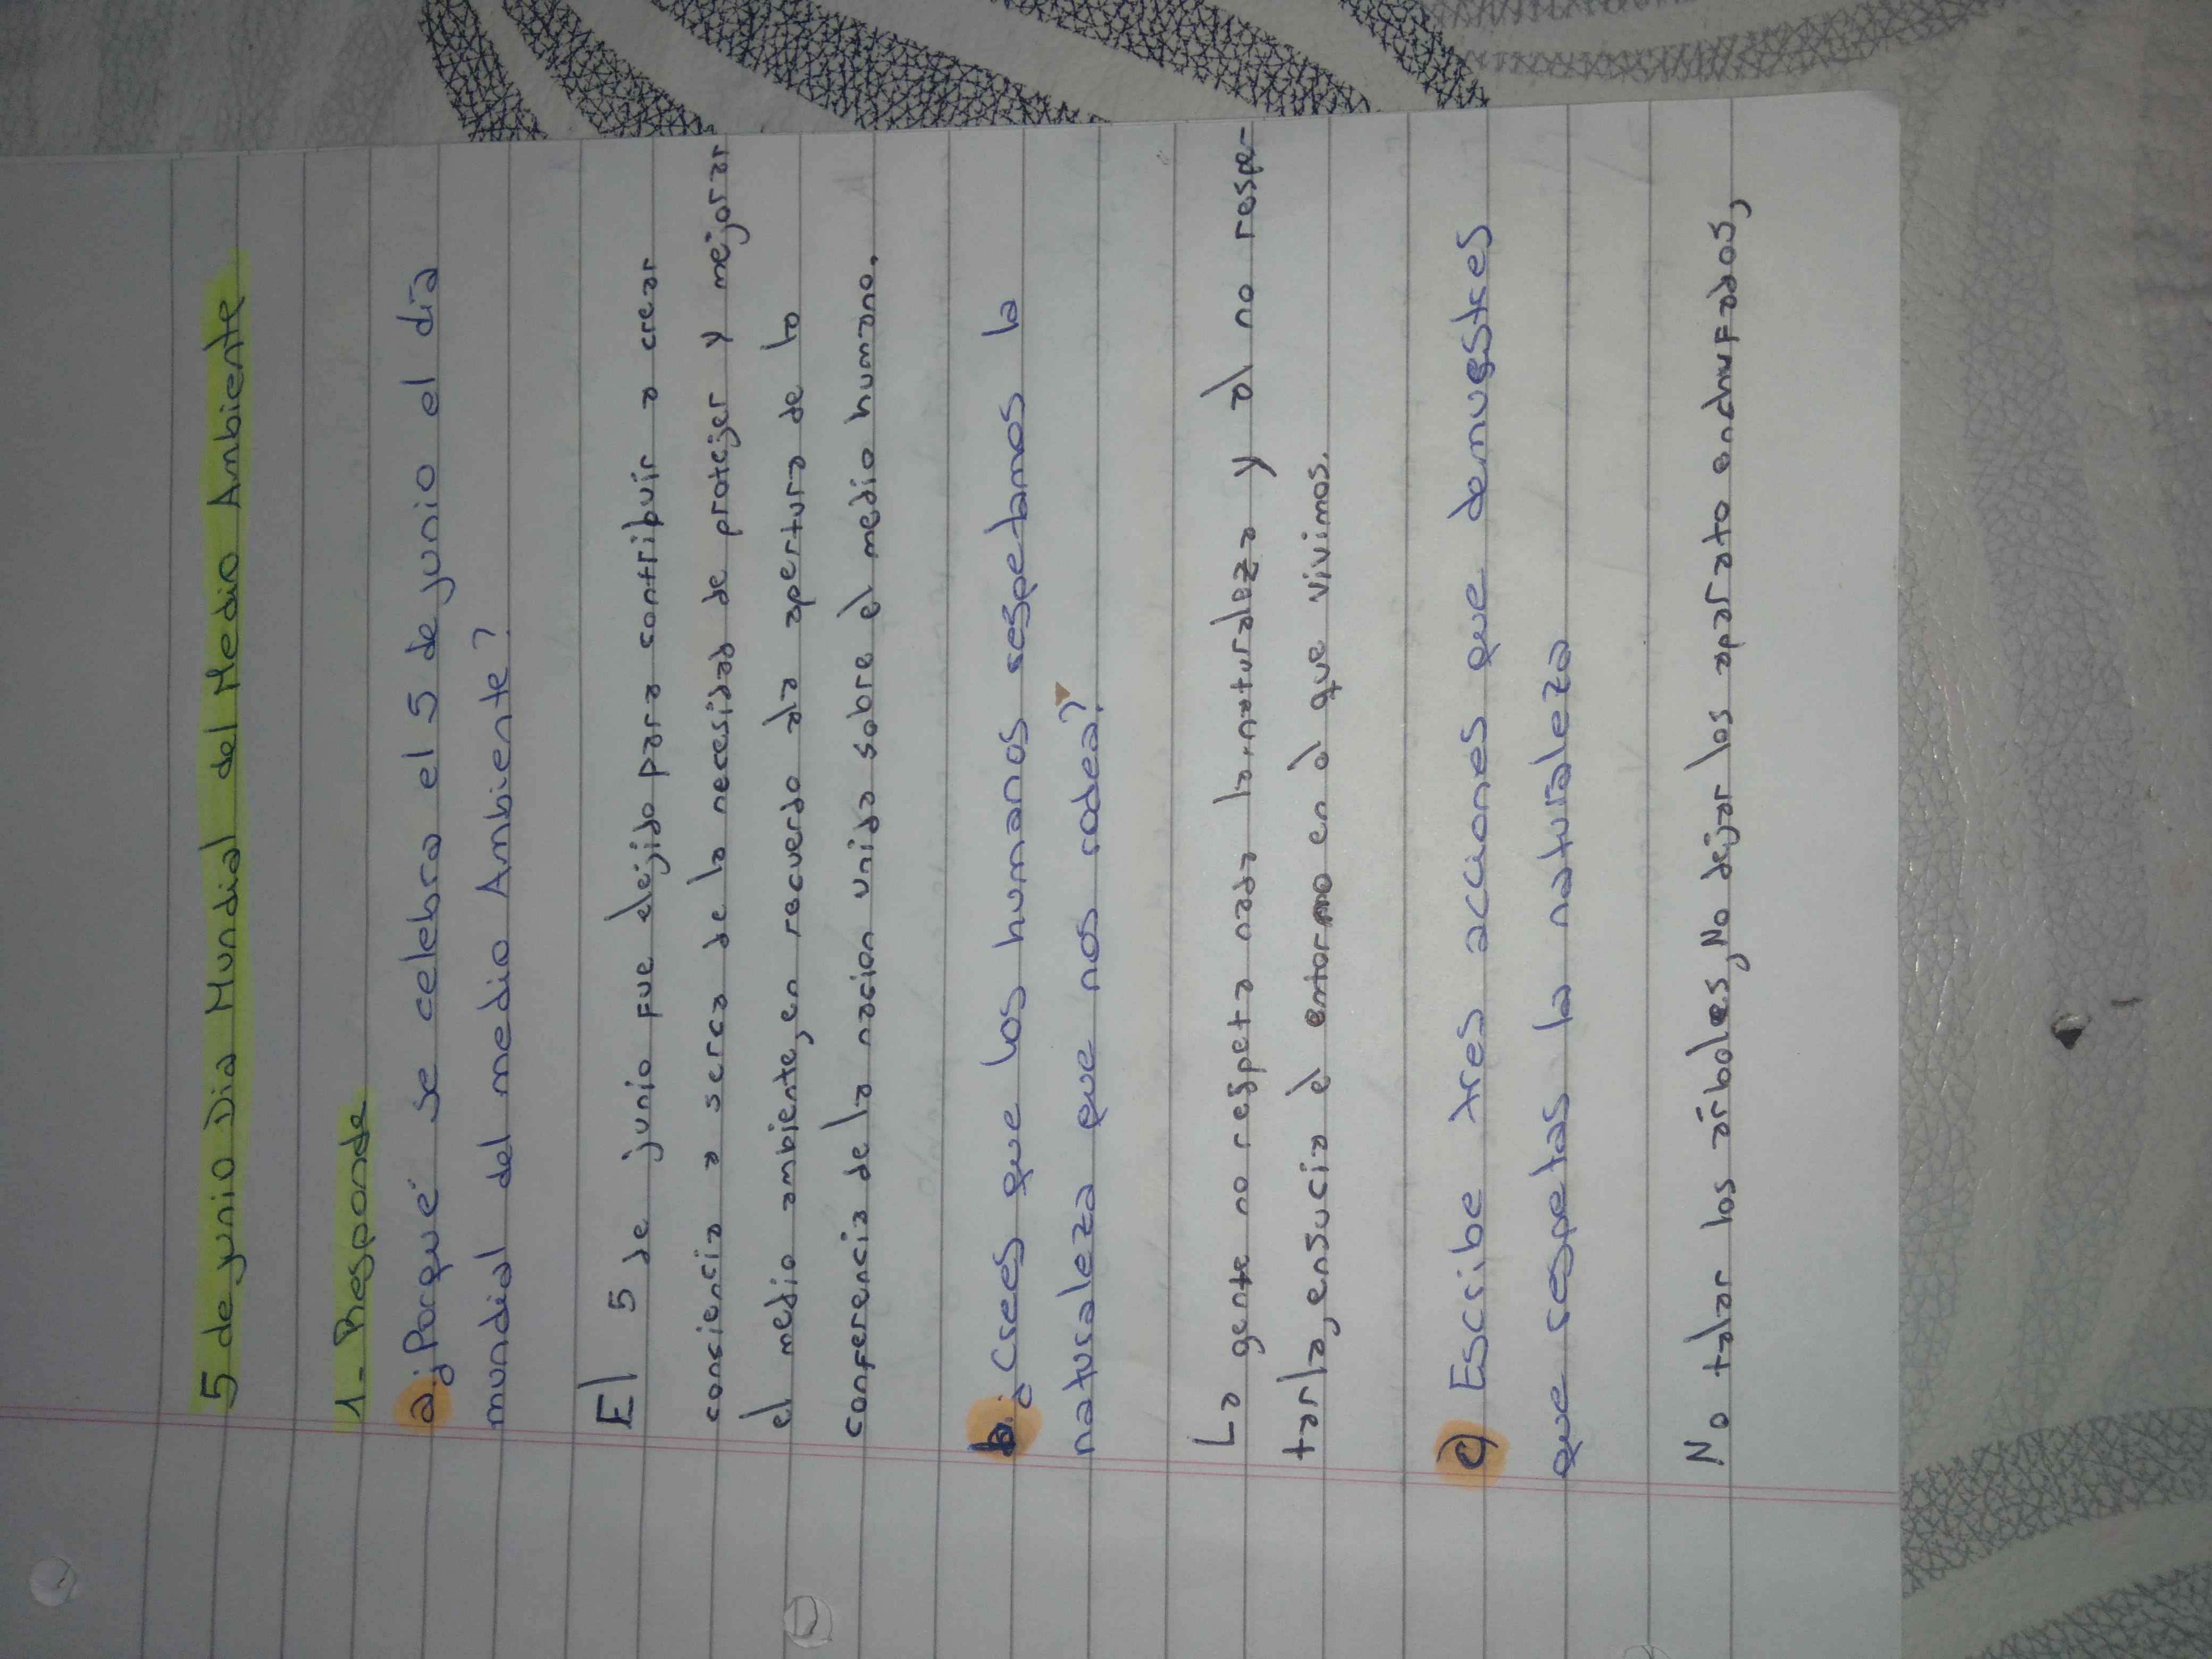 5 de junio Dia Mundial del Medio Ambiente
1- Responde
a) ¿Porqué se celebra el 5 de junio el día
mundial del medio Ambiente?
El 5 de junio fue elejido para contribuir a crear
conciencia a serca de la necesidad de protejer y mejorar
el medio ambiente, en recuerdo ala apertura de la
conferencia de la nacion unida sobre el medio humano.
b. ¿Crees que los humanos respetamos la
naturaleza que nos rodea?
La gente no respeta nada la naturaleza y al no respe-
tarla, ensucia el entorno en el que vivimos.
c) Escribe tres acciones que demuestres
que respetas la naturaleza
No talar los árboles, No dejar los aparato enchufados,